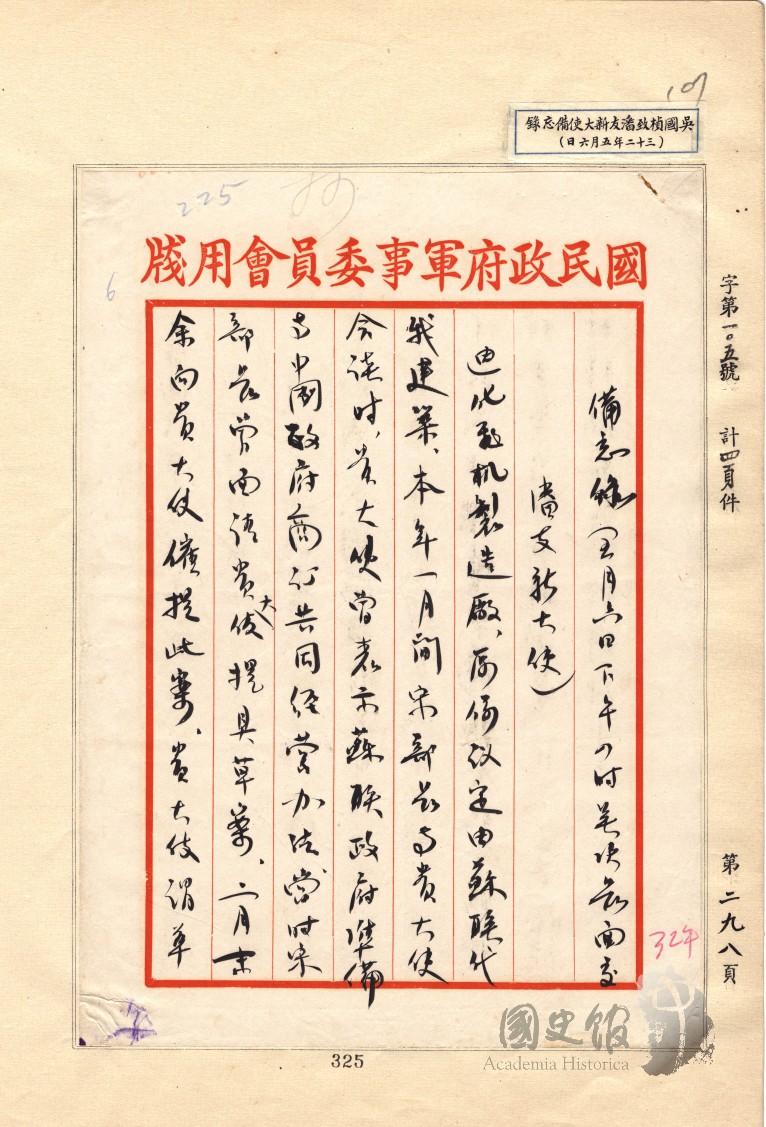 吳國楨致潘友新大使備忘錄
(三十二年五月六日)
225
6
國民政府軍事委員會用牋
字第一〇五號 計四頁件
第二九八頁
32年
備忘錄(五月六日下午四時吳次長面交
潘友新大使)
迪化飛机製造廠、原係議定由蘇聯代
我建築、本年一月間宋部長与貴大使
會談時、貴大使曾表示蘇聯政府準備
与中國政府商訂共同經營办法當時宋
部長曾面請貴大使提具草案、二月末
余向貴大使催提此案、貴大使謂草
325
國史館
Academia Historica